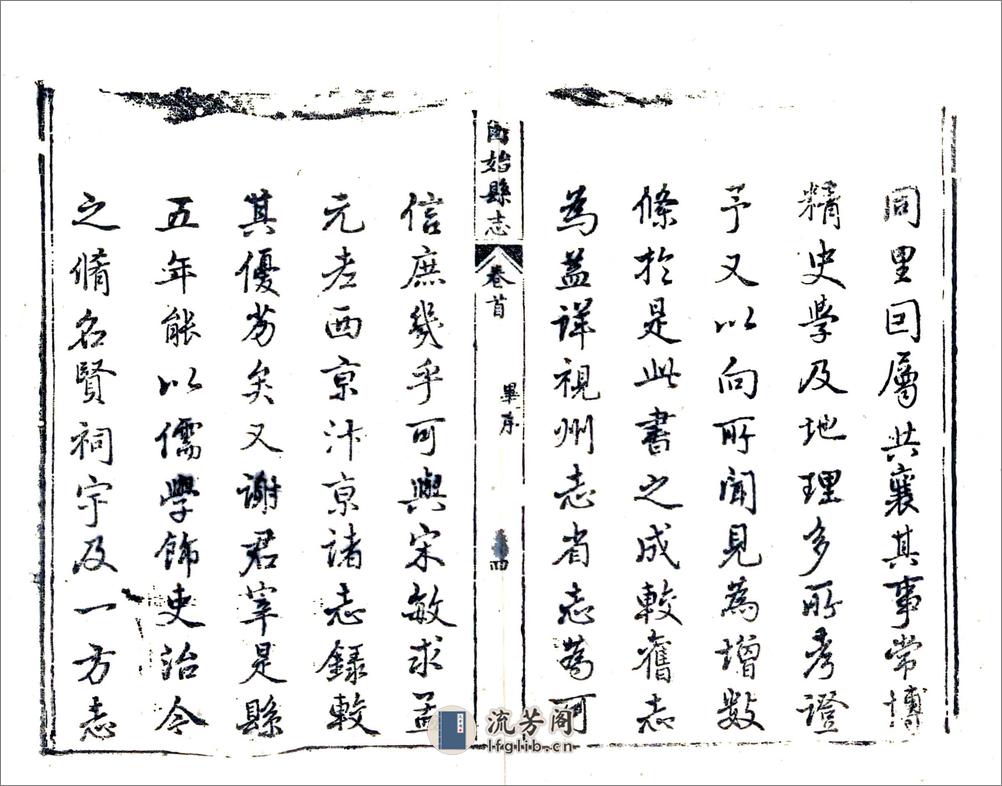 同里回屬共襄其事常博
精史學及地理多所考證
予又以向所聞見為增數
條於是此書之成較舊志
為益詳視州志省志為可
固始縣志
卷首
畢序
四
信庶幾乎可與宋敏求孟
元老西京汴京諸志錄較
其優劣矣又謝君宰是縣
五年能以儒學飾吏治今
之脩名賢祠宇及一方志
流芳阁
lfglib.cn